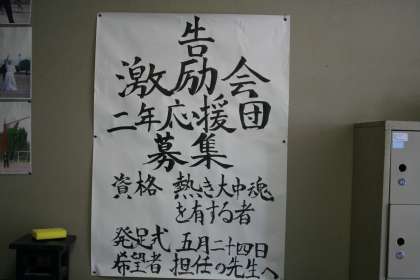 告
激励会
二年応援団
募集
資格 熱き大中魂
を有する者
発足式 五月二十四日
希望者 担任の先生へ